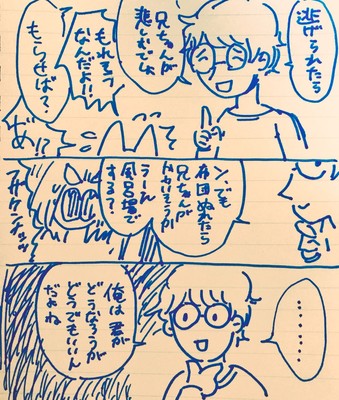 逃げられたら
兄ちゃんが
悲しむでしょ
もれそう
なんだよ!!
もらせば?
ン、でも
布団ぬれたら
兄ちゃんが
うーん
風呂場で
する?
フザケンナッッ
……
俺は君が
どうなろうが
どうでもいいん
だよね